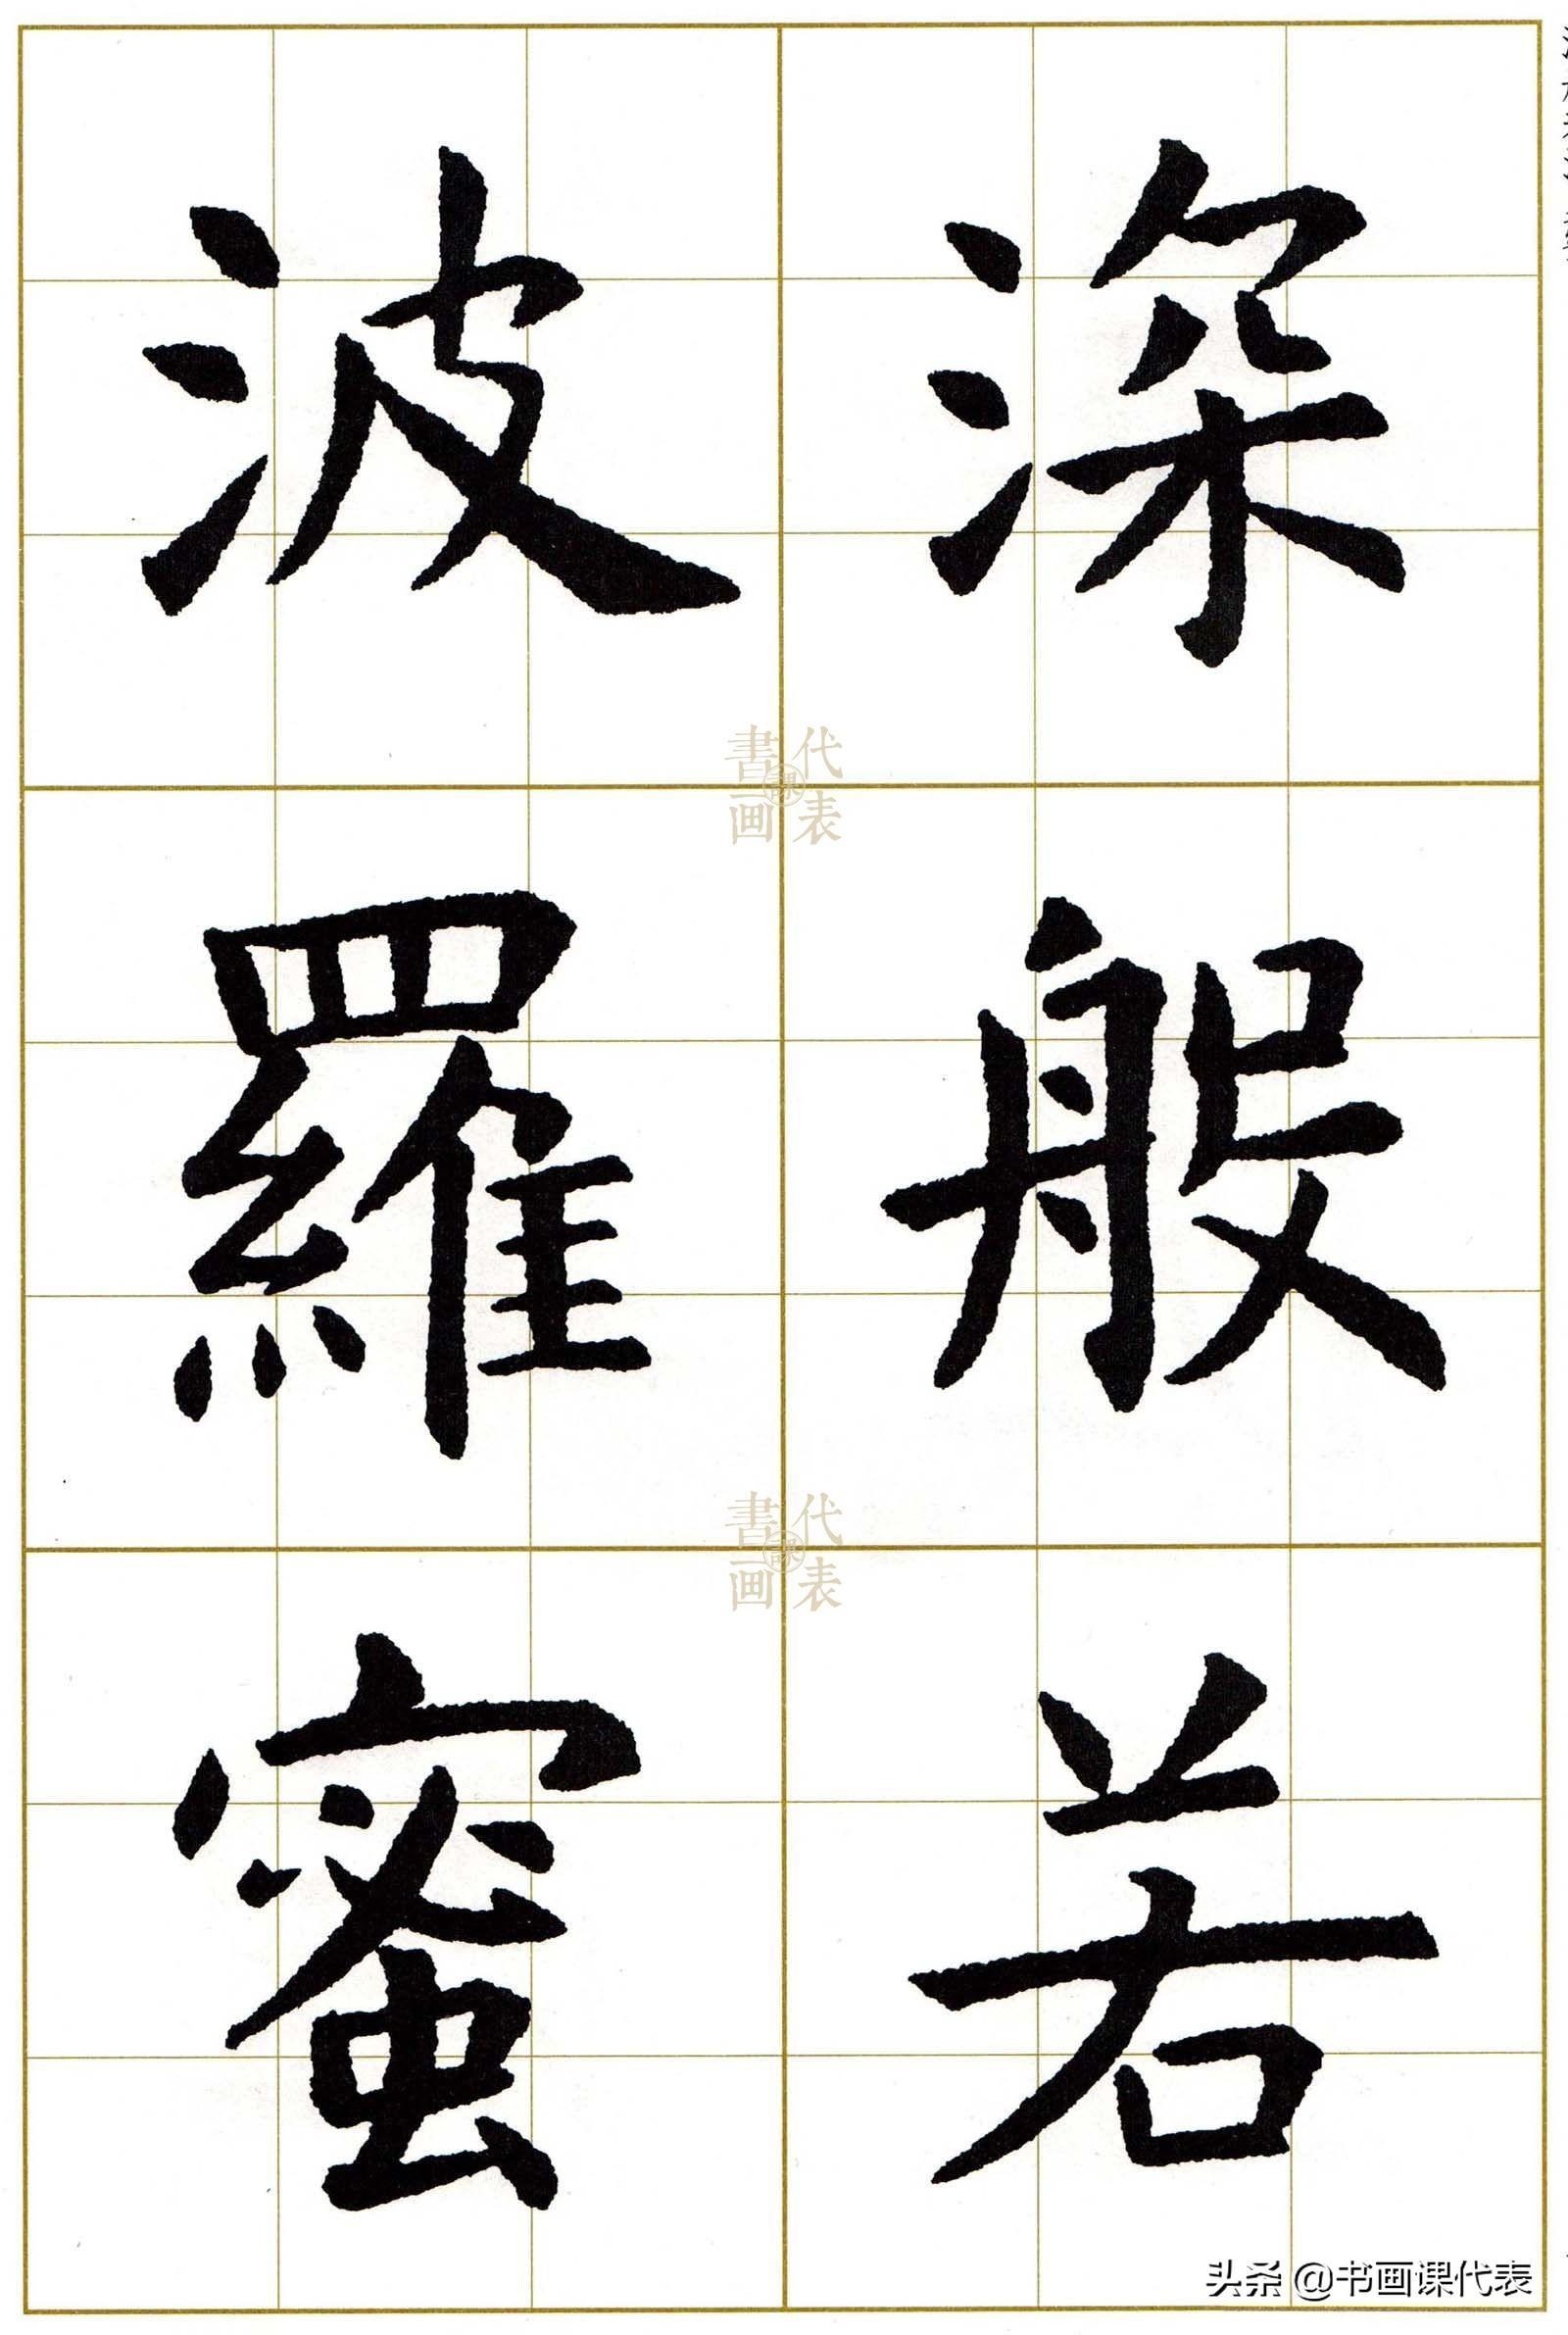 深般若
波羅蜜
書画課代表
書画課代表
头条 @书画课代表